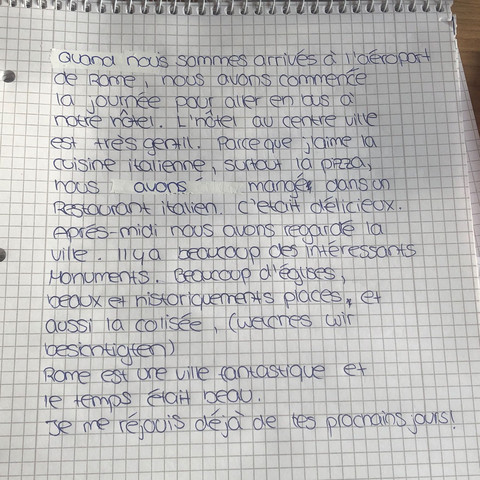 Quand nous sommes arrivés à l'aéroport
de Rome, nous avons commencé
la journée pour aller en bus à
notre hôtel. L'hôtel au centre ville
est très gentil. Parce que j'aime la
cuisine italienne, surtout la pizza,
nous avons mangé dans un
Restaurant italien. C'était délicieux.
Après-midi nous avons regardé la
ville. Il y a beaucoup des intéressants
Monuments. Beaucoup d'églises,
beaux et historiquements places, et
aussi la colisée, (welches wir
besichtigten)
Rome est une ville fantastique et
le temps était beau.
Je me réjouis déjà de tes prochains jours!